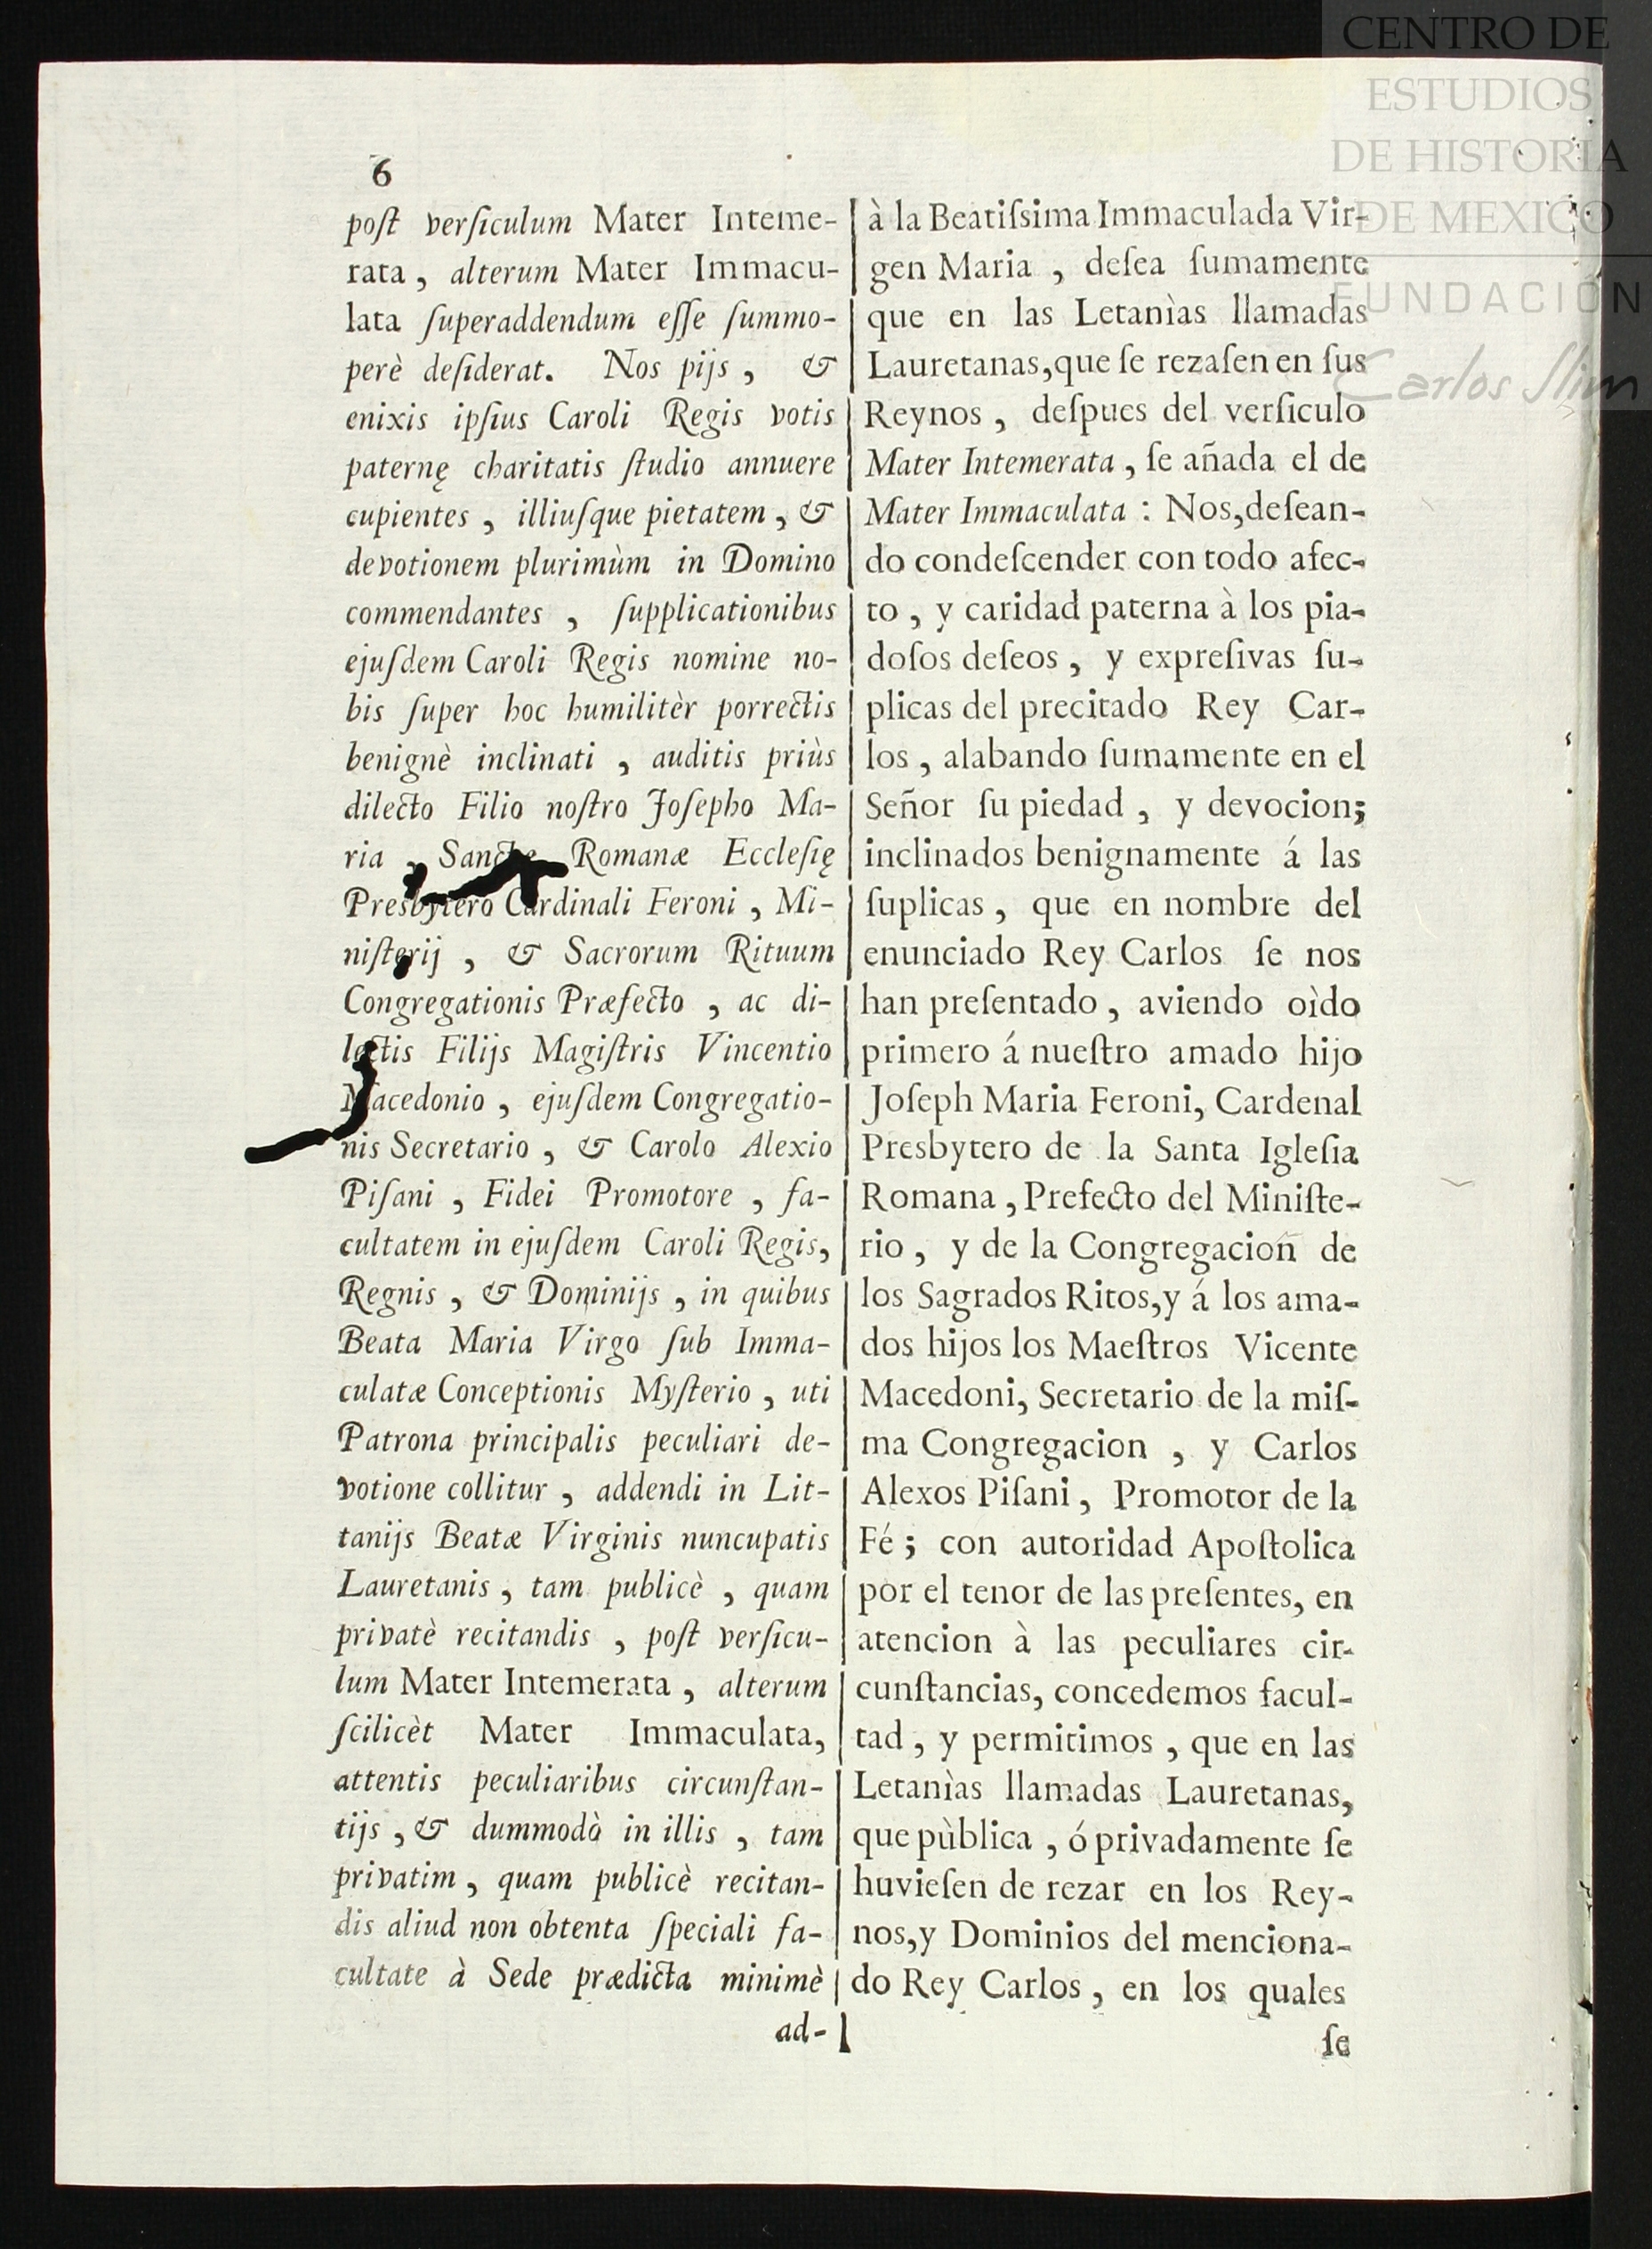 6
poſt verſiculum Mater Inteme-
rata, alterum Mater Immacu-
lata ſuperaddendum eſſe ſummo-
perè deſiderat. Nos pijs, &
enixis ipſius Caroli Regis votis
paternę charitatis ſtudio annuere
cupientes, illiuſque pietatem, &
devotionem plurimùm in Domino
commendantes, ſupplicationibus
ejuſdem Caroli Regis nomine no-
bis ſuper hoc humilitèr porrectis
benignè inclinati, auditis priùs
dilecto Filio noſtro Joſepho Ma-
ria, Romanæ Eccleſię
Presbytero Cardinali Feroni, Mi-
niſterij, & Sacrorum Rituum
Congregationis Præfecto, ac di-
lectis Filijs Magiſtris Vincentio
Macedonio, ejuſdem Congregatio-
nis Secretario, & Carolo Alexio
Piſani, Fidei Promotore, fa-
cultatem in ejuſdem Caroli Regis,
Regnis, & Dominijs, in quibus
Beata Maria Virgo ſub Imma-
culatæ Conceptionis Myſterio, uti
Patrona principalis peculiari de-
votione collitur, addendi in Lit-
tanijs Beatæ Virginis nuncupatis
Lauretanis, tam publicè, quam
privatè recitandis, poſt verſicu-
lum Mater Intemerata, alterum
ſcilicèt Mater Immaculata,
attentis peculiaribus circunſtan-
tijs, & dummodò in illis, tam
privatim, quam publicè recitan-
dis aliud non obtenta ſpeciali fa-
cultate à Sede prædicta minimè
ad-
à la Beatiſsima Immaculada Vir-
gen Maria, deſea ſumamente
que en las Letanìas llamadas
Lauretanas, que ſe rezaſen en ſus
Reynos, deſpues del verſiculo
Mater Intemerata, ſe añada el de
Mater Immaculata: Nos, deſean-
do condeſcender con todo afec-
to, y caridad paterna à los pia-
doſos deſeos, y expreſivas ſu-
plicas del precitado Rey Car-
los, alabando ſumamente en el
Señor ſu piedad, y devocion;
inclinados benignamente á las
ſuplicas, que en nombre del
enunciado Rey Carlos ſe nos
han preſentado, aviendo oìdo
primero á nueſtro amado hijo
Joſeph Maria Feroni, Cardenal
Presbytero de la Santa Igleſia
Romana, Prefecto del Miniſte-
rio, y de la Congregacion de
los Sagrados Ritos, y á los ama-
dos hijos los Maeſtros Vicente
Macedoni, Secretario de la miſ-
ma Congregacion, y Carlos
Alexos Piſani, Promotor de la
Fé; con autoridad Apoſtolica
por el tenor de las preſentes, en
atencion à las peculiares cir-
cunſtancias, concedemos facul-
tad, y permitimos, que en las
Letanìas llamadas Lauretanas,
que pùblica, ó privadamente ſe
huvieſen de rezar en los Rey-
nos, y Dominios del menciona-
do Rey Carlos, en los quales
ſe
CENTRO DE
ESTUDIOS
DE HISTORIA
DE MEXICO
FUNDACIÓN
Carlos Slim